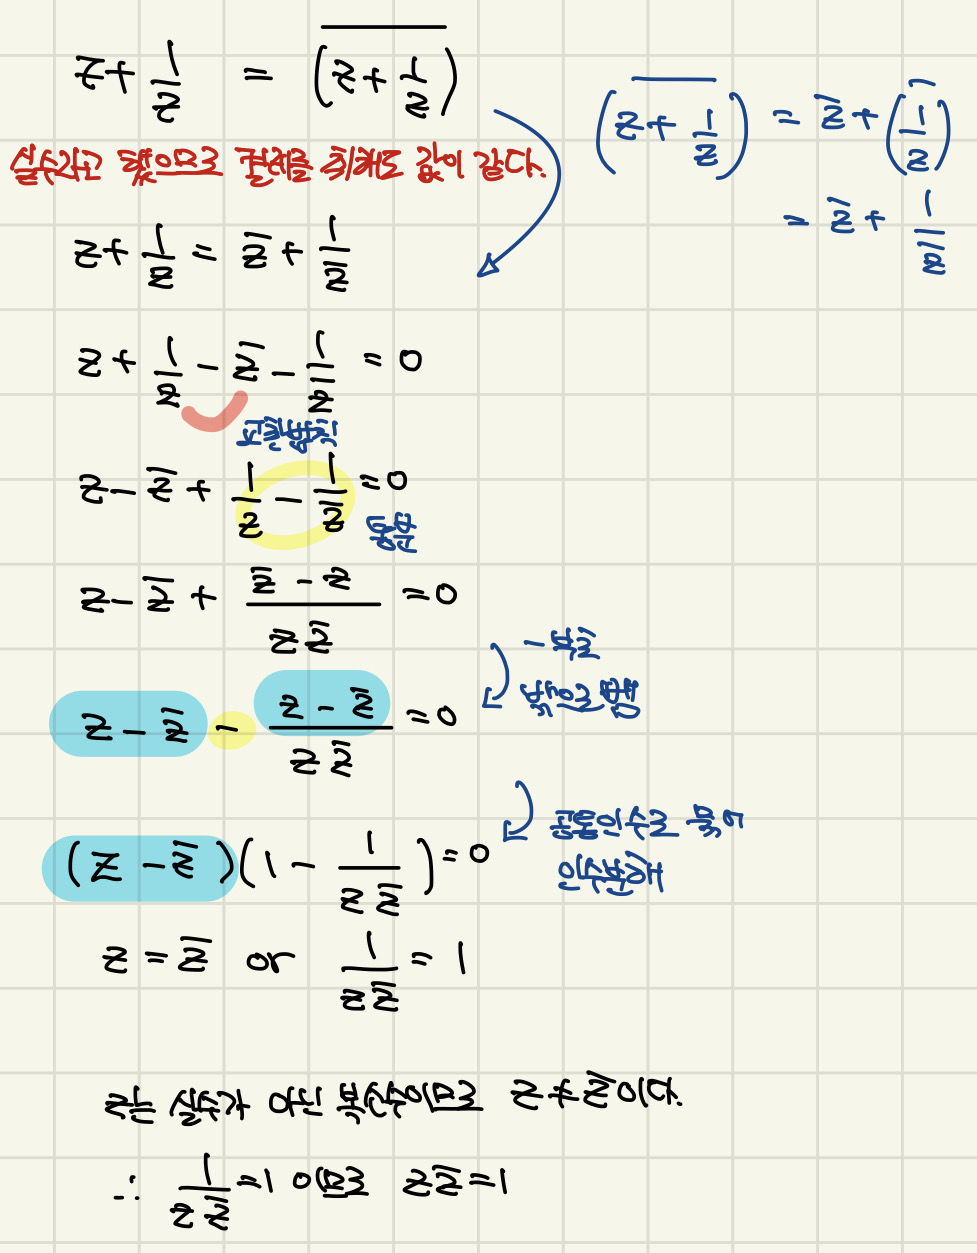 z + 1/z = \overline{(z + 1/z)}
실수라고 했으므로 켤레를 취해도 값이 같다.
z + 1/z = z̄ + 1/z̄
z + 1/z - z̄ - 1/z̄ = 0
교환법칙
z - z̄ + 1/z - 1/z̄ = 0
통분
z - z̄ + (z̄ - z)/(z z̄) = 0
-부호
밖으로 뺌
z - z̄ - (z - z̄)/(z z̄) = 0
공통인수로 묶어
인수분해
(z - z̄)(1 - 1/(z z̄)) = 0
z = z̄ or 1/(z z̄) = 1
z는 실수가 아닌 복소수이므로 z ≠ z̄ 이다.
∴ 1/(z z̄) = 1 이므로 z z̄ = 1
\overline{(z + 1/z)} = z̄ + \overline{(1/z)}
= z̄ + 1/z̄